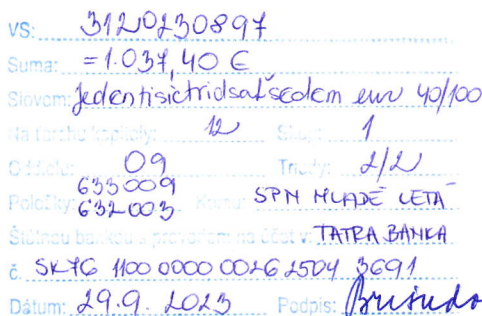 VS: 3120230897
Suma: =1.037,40 €
Slovom: Jedentisíctridsaťsedem eur 40/100
Na ťarchu kapitoly: 12 Skup: 1
Oddielu: 09 Triedy: 2/2
633009
Položky: 632003 SPN MLADÉ LETÁ
Štátnou bankou s prevodom na účet v: TATRA BANKA
č. SK76 1100 0000 0026 2504 3691
Dátum: 29.9. 2023 Podpis: